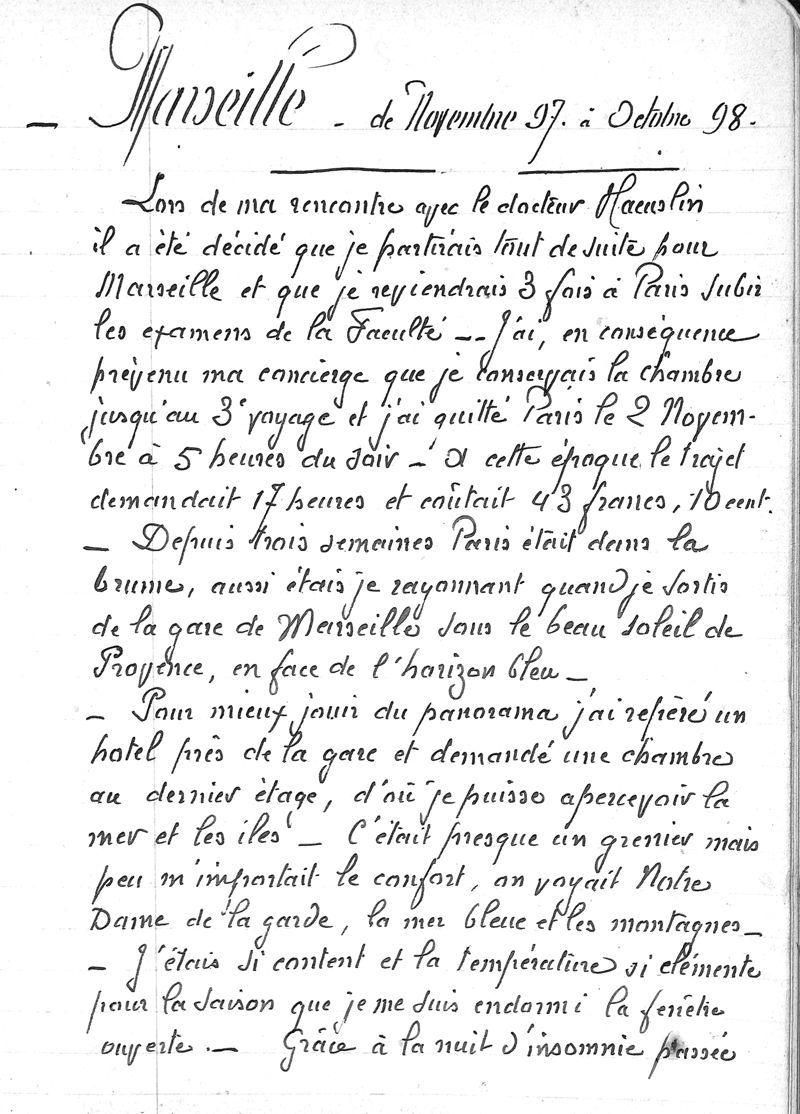 — Marseille - de Novembre 97. à Octobre 98.
Lors de ma rencontre avec le docteur Haeuslin
il a été décidé que je partirais tout de suite pour
Marseille et que je reviendrais 3 fois à Paris subir
les examens de la Faculté -- J'ai, en conséquence
prévenu ma concierge que je conservais la chambre
jusqu'au 3e voyage et j'ai quitté Paris le 2 Novem-
bre à 5 heures du soir - A cette époque le trajet
demandait 17 heures et coûtait 43 francs, 10 cent.
— Depuis trois semaines Paris était dans la
brume, aussi étais je rayonnant quand je sortis
de la gare de Marseille sous le beau soleil de
Provence, en face de l'horizon bleu —
— Pour mieux jouir du panorama j'ai repéré un
hotel près de la gare et demandé une chambre
au dernier étage, d'où je puisse apercevoir la
mer et les iles — C'était presque un grenier mais
peu m'importait le confort, on voyait Notre
Dame de la garde, la mer bleue et les montagnes —
— J'étais si content et la température si clémente
pour la saison que je me suis endormi la fenêtre
ouverte. — Grâce à la nuit d'insomnie passée